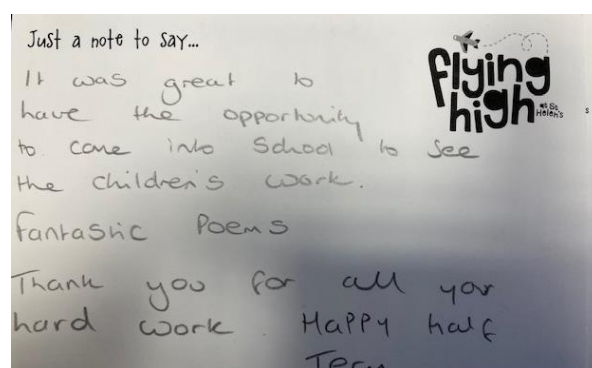 Just a note to say...
flying
high
at St
Helen's
s
It was great to
have the opportunity
to come into School to see
the children's work.
fantastic Poems
Thank you for all your
hard work. Happy half
Term